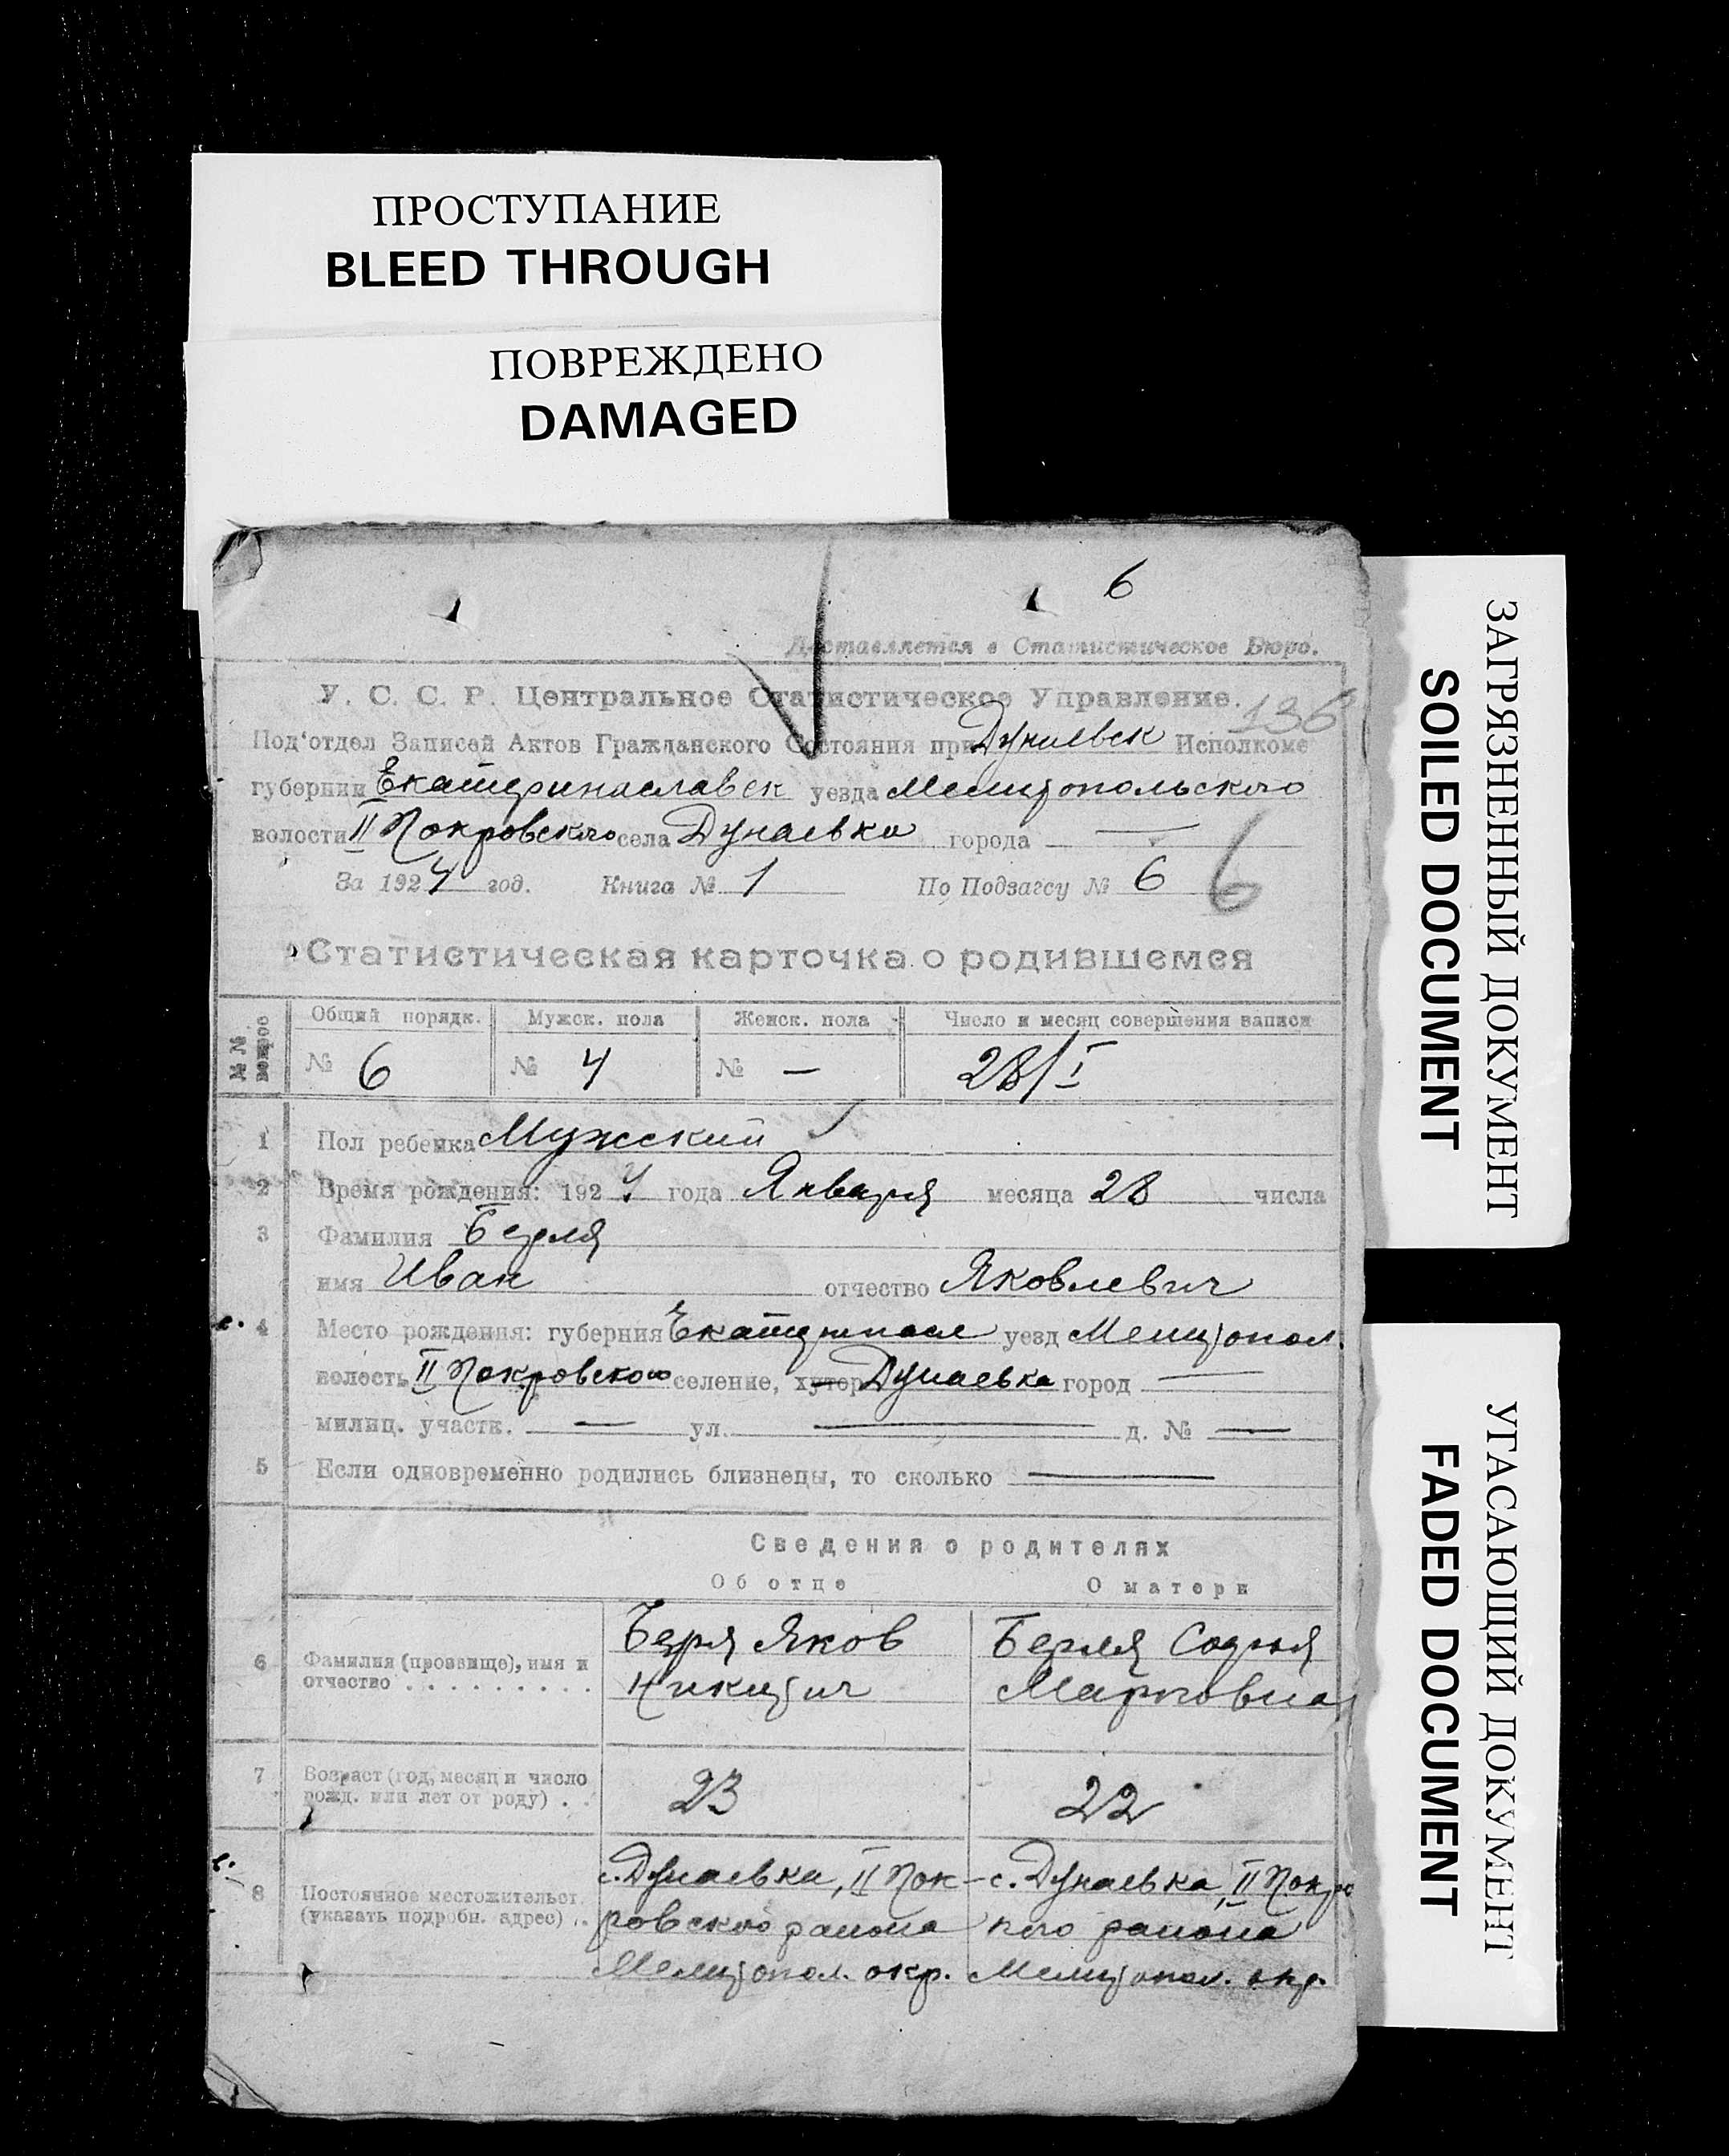 ПРОСТУПАНИЕ
BLEED THROUGH
ПОВРЕЖДЕНО
DAMAGED
6
Доставляется в Статистическое Бюро.
У. С. С. Р. Центральное Статистическое Управление.
136
Под'отдел Записей Актов Гражданского Состояния при Дунаевск Исполкоме
губернии Екатеринославск уезда Мелитопольского
волости II Покровского села Дунаевка города —
За 1924 год. Книга № 1 По Подзагсу № 6 6
Статистическая карточка о родившемся
№№ вопрос Общий порядк. Мужск. пола Женск. пола Число и месяц совершения записи
№ 6 № 4 № — 28/I
1 Пол ребенка Мужский
2 Время рождения: 1924 года Января месяца 28 числа
3 Фамилия Берля
имя Иван отчество Яковлевич
4 Место рождения: губерния Екатериносл уезд Мелитопол.
волость II Покровского селение, хутор Дунаевка город —
милиц. участк. — ул. — д. № —
5 Если одновременно родились близнецы, то сколько —
Сведения о родителях
Об отце О матери
6 Фамилия (прозвище), имя и отчество . . . . . . . . . .
Яков
Никитич
Берля Софья
Марковна
7 Возраст (год, месяц и число рожд. или лет от роду) . .
23 22
8 Постоянное местожительст. (указать подробн. адрес) . .
с. Дунаевка, II Пок-
ровского района
Мелитопол. окр.
с. Дунаевка, II Покро
кого района
Мелитопол. окр.
ЗАГРЯЗНЕННЫЙ ДОКУМЕНТ
SOILED DOCUMENT
УГАСАЮЩИЙ ДОКУМЕНТ
FADED DOCUMENT